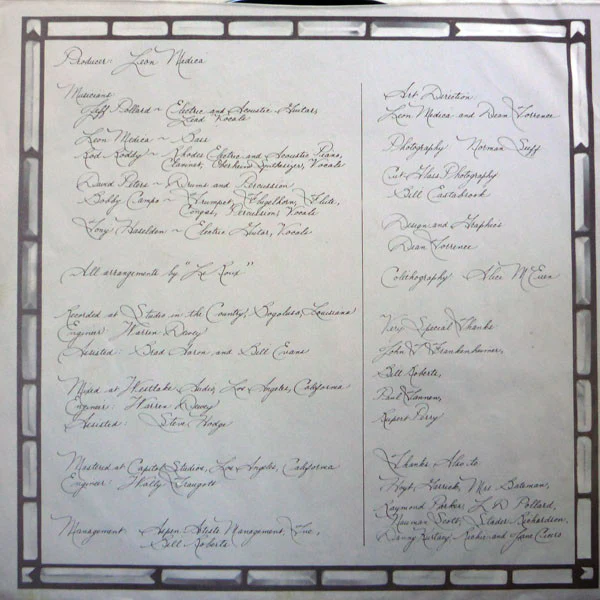 Producer: Leon Medica
Musicians
Jeff Pollard ~ Electric and Acoustic Guitars,
Lead Vocals
Leon Medica ~ Bass
Rod Roddy ~ Rhodes Electric and Acoustic Piano,
Clavinet, Oberheim Synthesizer, Vocals
David Peters ~ Drums and Percussion
Bobby Campo ~ Trumpet, Flugelhorn, Flute,
Congas, Percussion, Vocals
Tony Haselden ~ Electric Guitar, Vocals
All arrangements by "Le Roux"
Recorded at Studio in the Country, Bogalusa, Louisiana
Engineer: Warren Dewey
Assisted: Brad Aaron and Bill Evans
Mixed at Westlake Audio, Los Angeles, California
Engineer: Warren Dewey
Assisted: Steve Hodge
Mastered at Capitol Studios, Los Angeles, California
Engineer: Wally Traugott
Management: Aspen Artists Management, Inc.,
Bill Roberts
Art Direction
Leon Medica and Dean Torrence
Photography Norman Seeff
Cut Glass Photography
Bill Eastabrook
Design and Graphics
Dean Torrence
Alice McEuen
Very Special Thanks
John T. Frankenheimer,
Bill Roberts,
Paul Tannen,
Rupert Perry
Thanks Also to
Hoyt Garrick, Mrs. Bateman,
Raymond Parker, L.D. Pollard,
Scott, Richardson,
Danny and Jane